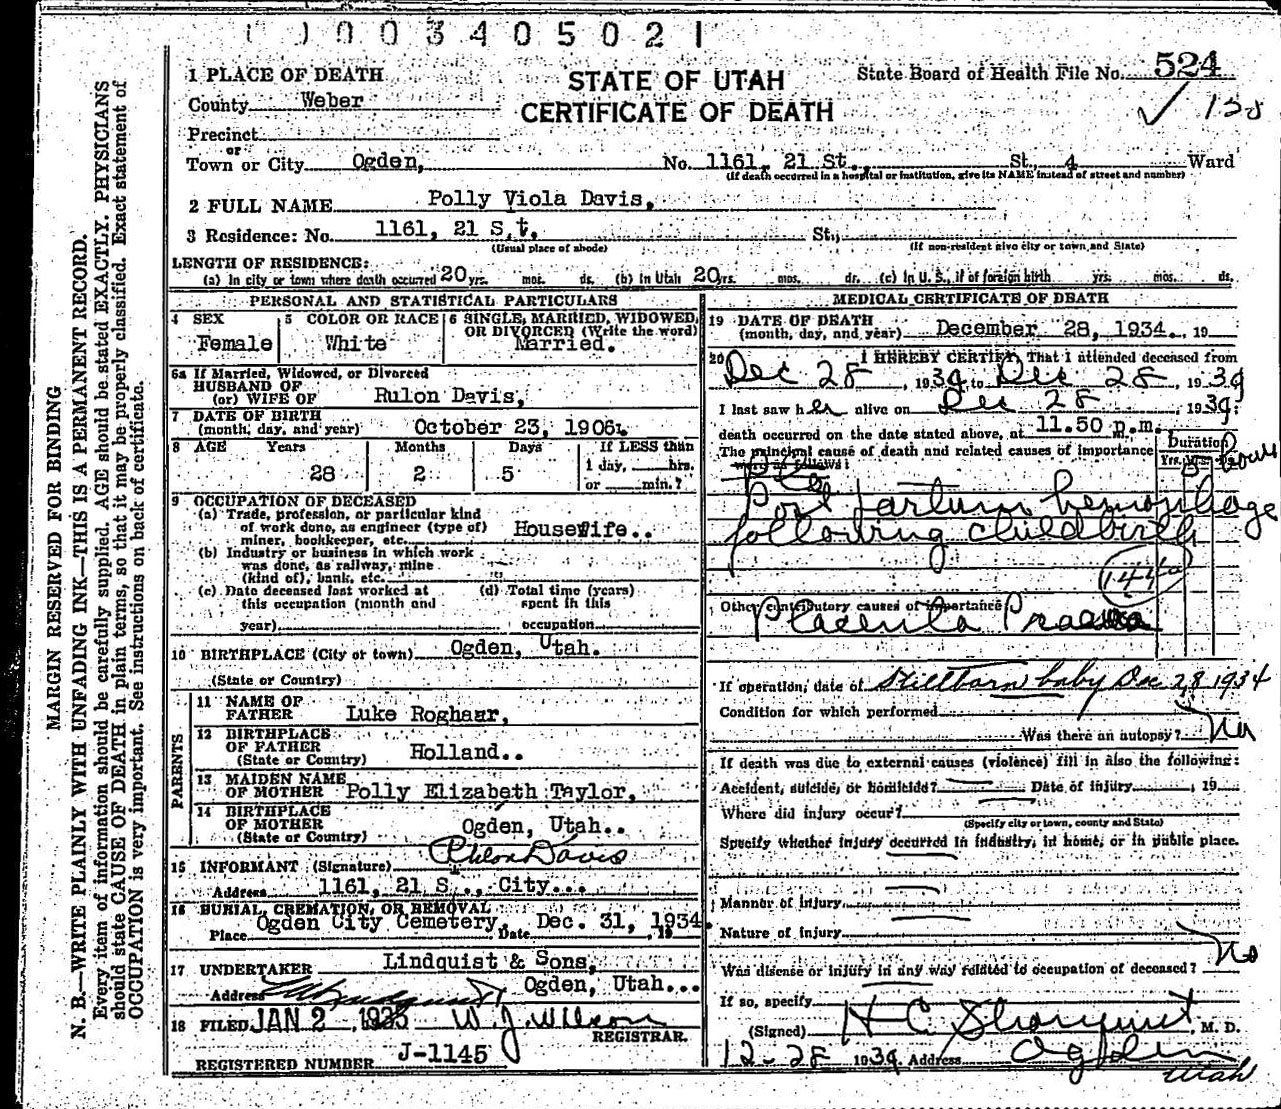 0 0 3 4 0 5 0 2 1
1 PLACE OF DEATH
STATE OF UTAH
CERTIFICATE OF DEATH
State Board of Health File No. 524
County Weber
Precinct
or
Town or City Ogden, No. 1161, 21 St., St., 4 Ward
(If death occurred in a hospital or institution, give its NAME instead of street and number)
2 FULL NAME Polly Viola Davis,
3 Residence: No. 1161, 21 S.t, St.,
(Usual place of abode) (If non-resident give city or town and State)
LENGTH OF RESIDENCE:
(a) In city or town where death occurred 20 yrs. mos. ds. (b) In Utah 20 yrs. mos. ds. (c) In U. S., if of foreign birth yrs. mos. ds.
PERSONAL AND STATISTICAL PARTICULARS
4 SEX
Female
5 COLOR OR RACE
White
6 SINGLE, MARRIED, WIDOWED,
OR DIVORCED (Write the word)
Married.
6a If Married, Widowed, or Divorced
HUSBAND OF
(or) WIFE OF Rulon Davis,
7 DATE OF BIRTH
(month, day, and year) October 23, 1906.
8 AGE Years Months Days If LESS than
1 day, hrs.
28 2 5 or min.?
9 OCCUPATION OF DECEASED
(a) Trade, profession, or particular kind
of work done, as engineer (type of)
miner, bookkeeper, etc. Housewife..
(b) Industry or business in which work
was done, as railway, mine
(kind of), bank, etc.
(c) Date deceased last worked at
this occupation (month and
year)
(d) Total time (years)
spent in this
occupation
10 BIRTHPLACE (City or town) Ogden, Utah.
(State or Country)
PARENTS
11 NAME OF
FATHER Luke Roghaar,
12 BIRTHPLACE
OF FATHER
(State or Country) Holland..
13 MAIDEN NAME
OF MOTHER Polly Elizabeth Taylor,
14 BIRTHPLACE
OF MOTHER
(State or Country) Ogden, Utah..
15 INFORMANT (Signature) Davis
Address 1161, 21 S., City...
16 BURIAL, CREMATION, OR REMOVAL
Place Ogden City Cemetery, Date Dec. 31, 1934. , 19
17 UNDERTAKER Lindquist & Sons,
Address Ogden, Utah...
18 FILED JAN 2 , 1935 W. J. Wilson
REGISTRAR.
REGISTERED NUMBER J-1145
MEDICAL CERTIFICATE OF DEATH
19 DATE OF DEATH
(month, day, and year) December 28, 1934. , 19
20 I HEREBY CERTIFY, That I attended deceased from
Dec 28 , 1934, to Dec 28 , 1934
I last saw her alive on Dec 28 1934;
death occurred on the date stated above, at 11.50 p.m.
The principal cause of death and related causes of importance
were as follows:
Duration
Yrs. Mos. Ds.
hours
Post Partum hemorrhage
following childbirth
Other contributory causes of importance
Placenta Praevia
If operation, date of Stillborn baby Dec 28 1934
Condition for which performed
Was there an autopsy? No
If death was due to external causes (violence) fill in also the following:
Accident, suicide, or homicide? Date of injury , 19
Where did injury occur?
(Specify city or town, county and State)
Specify whether injury occurred in industry, in home, or in public place.
Manner of injury
Nature of injury
Was disease or injury in any way related to occupation of deceased? No
If so, specify
(Signed) H C Stranquist, M. D.
12-28 1934 Address Ogden
Utah
MARGIN RESERVED FOR BINDING
N. B.—WRITE PLAINLY WITH UNFADING INK—THIS IS A PERMANENT RECORD.
Every item of information should be carefully supplied. AGE should be stated EXACTLY. PHYSICIANS
should state CAUSE OF DEATH in plain terms, so that it may be properly classified. Exact statement of
OCCUPATION is very important. See instructions on back of certificate.